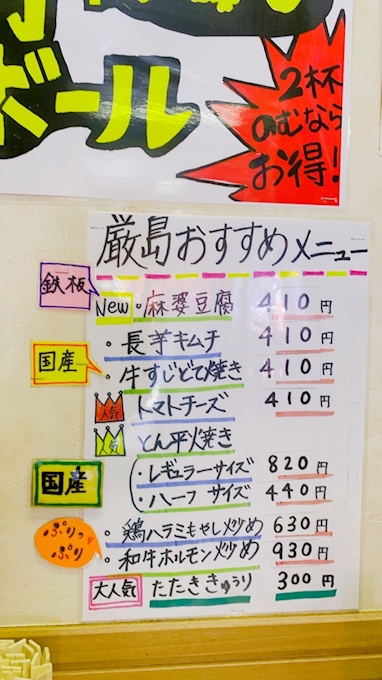 ボール
2杯
のむなら
お得!
厳島おすすめメニュー
鉄板
New・麻婆豆腐 410円
・長芋キムチ 410円
国産
・牛すじどて焼き 410円
人気 トマトチーズ 410円
人気 とん平焼き
国産
・レギュラーサイズ 820円
・ハーフサイズ 440円
ぷりっぷり
・鶏ハラミもやし炒め 630円
・和牛ホルモン炒め 930円
大人気 たたききゅうり 300円